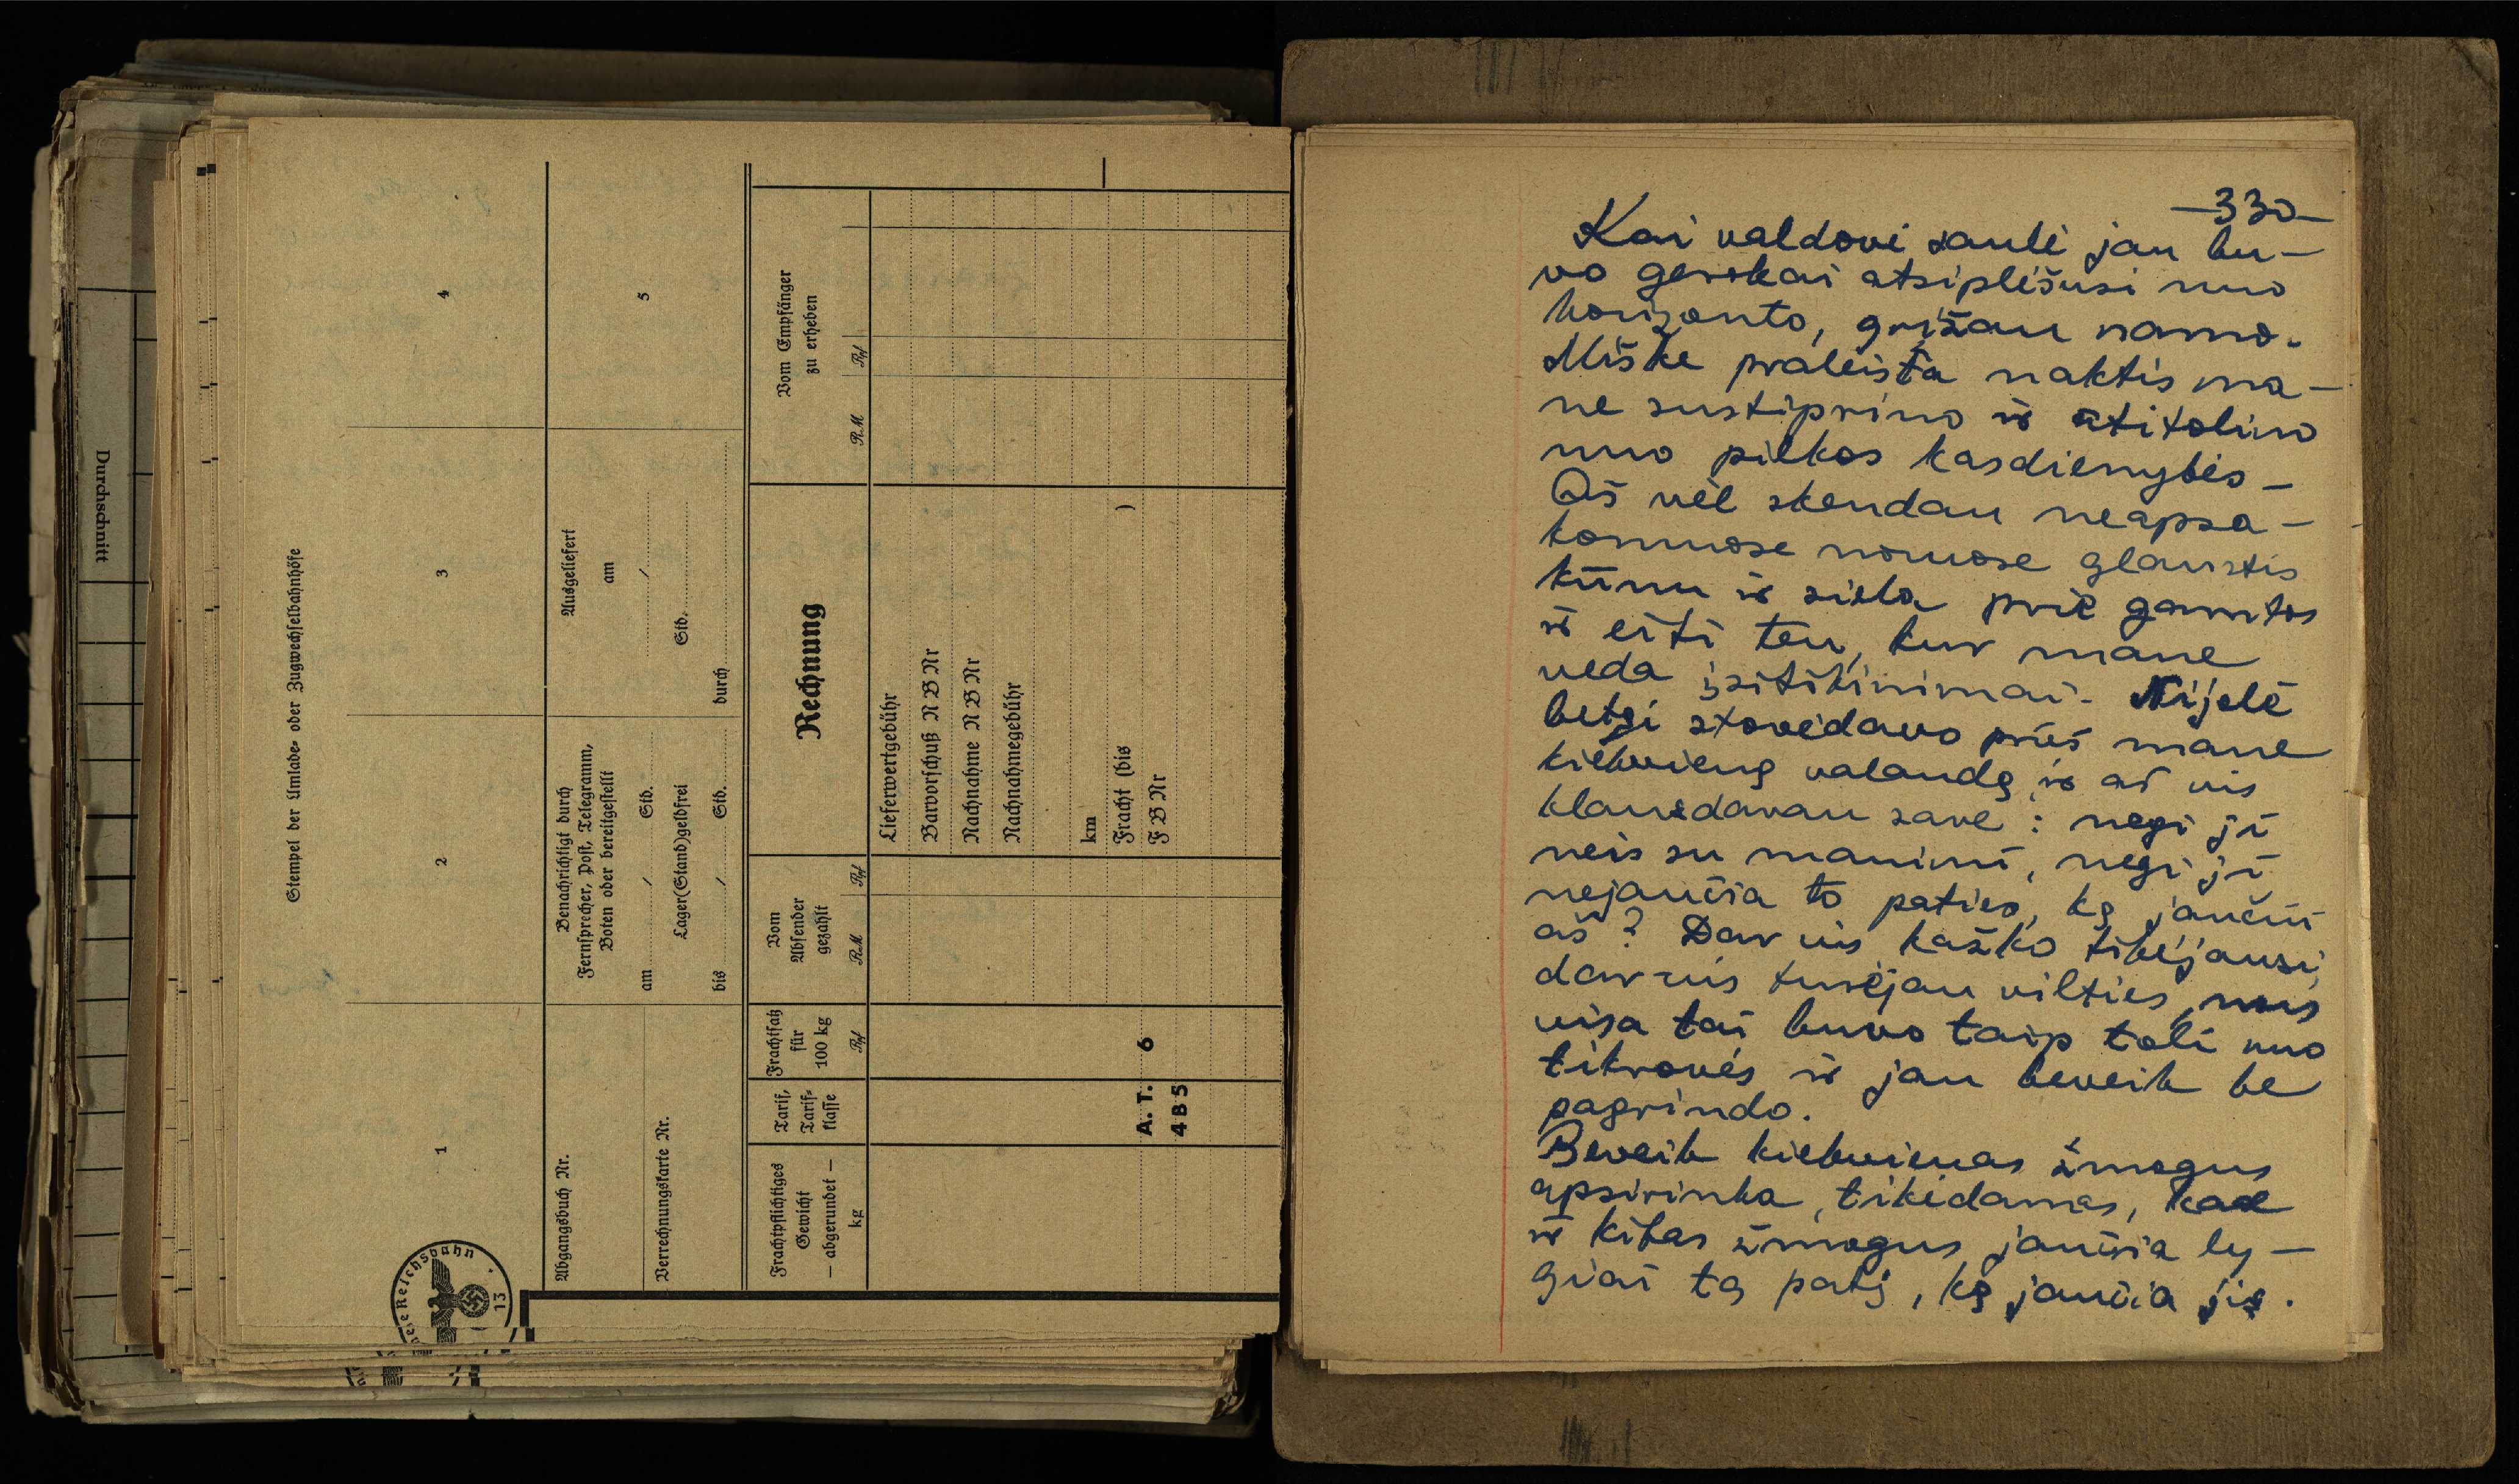 Durchschnitt
Stempel der Umlade- oder Zugwechselbahnhöfe
1
2
3
4
Abgangsbuch Nr.
Verrechnungskarte Nr.
Benachrichtigt durch
Fernsprecher, Post, Telegramm,
Boten oder bereitgestellt
am / Std.
Lager(Stand)geldfrei
bis / Std.
Ausgeliefert
am
/
Std.
durch
5
Frachtpflichtiges
Gewicht
— abgerundet —
kg
Tarif,
Tarif-
klasse
Frachtsatz
für
100 kg
Rpf
Vom
Absender
gezahlt
RM Rpf
Rechnung
Vom Empfänger
zu erheben
RM Rpf
Lieferwertgebühr
Barvorschuß N B Nr
Nachnahme N B Nr
Nachnahmegebühr
km
Fracht (bis )
F B Nr
A. T. 6
4 8 5
Reichsbahn
13
—330—
Kai valdovė saulė jau bu-
vo gerokai atsiplėšusi nuo
horizonto, grįžau namo.
Miške praleista naktis ma-
ne sustiprino ir atitolino
nuo pilkos kasdienybės –
Aš vėl skendau neapsa-
komuose noruose glaustis
kūnu ir siela prie gamtos
ir eiti ten, kur mane
veda įsitikinimai. Nijolė
betgi stovėdavo prieš mane
kiekvieną valandą ir aš vis
klausdavau save: negi ji
neis su manimi, negi ji
nejaučia to paties, ką jaučiu
aš? Dar vis kažko tikėjausi,
dar vis turėjau vilties, nors
visa tai buvo taip toli nuo
tikrovės ir jau beveik be
pagrindo.
Beveik kiekvienas žmogus
apsirinka, tikėdamas, kad
ir kitas žmogus jaučia ly-
giai tą patį, ką jaučia jis.